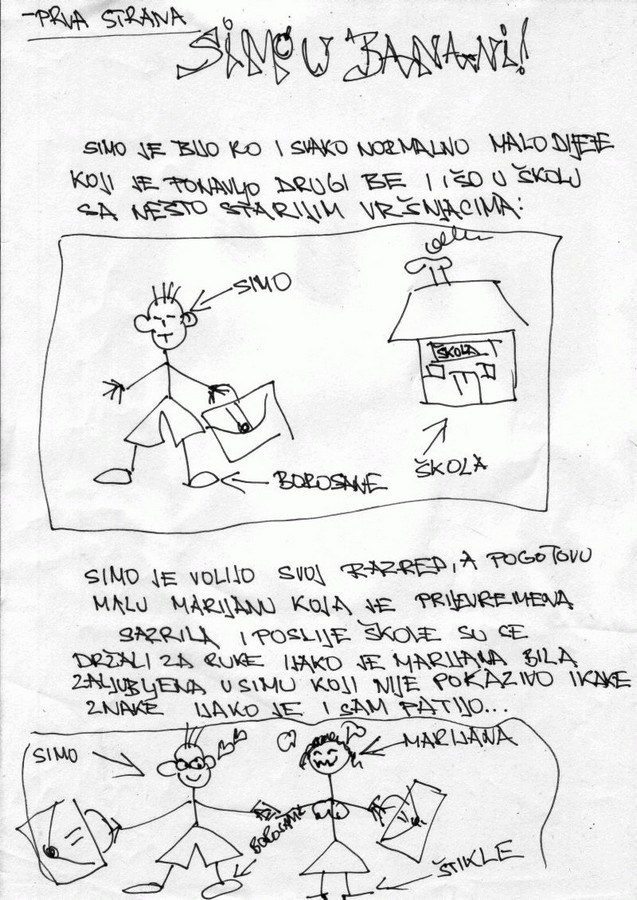 -PRVA STRANA
SIMO U BANANI!
SIMO JE BIJO KO I SVAKO NORMALNO MALO DIJETE
KOJI JE PONAVLJO DRUGI BE I IŠO U ŠKOLU
SA NEŠTO STARIJIM VRŠNJACIMA:
SIMO
ŠKOLA
ŠKOLA
BOROSANE
SIMO JE VOLIJO SVOJ RAZRED, A POGOTOVU
MALU MARIJANU KOJA JE PRIJEVREMENA
SAZRILA I POSLIJE ŠKOLE SU SE
DRŽALI ZA RUKE IJAKO JE MARIJANA BILA
ZALJUBLJENA U SIMU KOJI NIJE POKAZIVO IKAKE
ZNAKE IJAKO JE I SAM PATIJO...
SIMO
MARIJANA
BOROSANE
ŠTIKLE